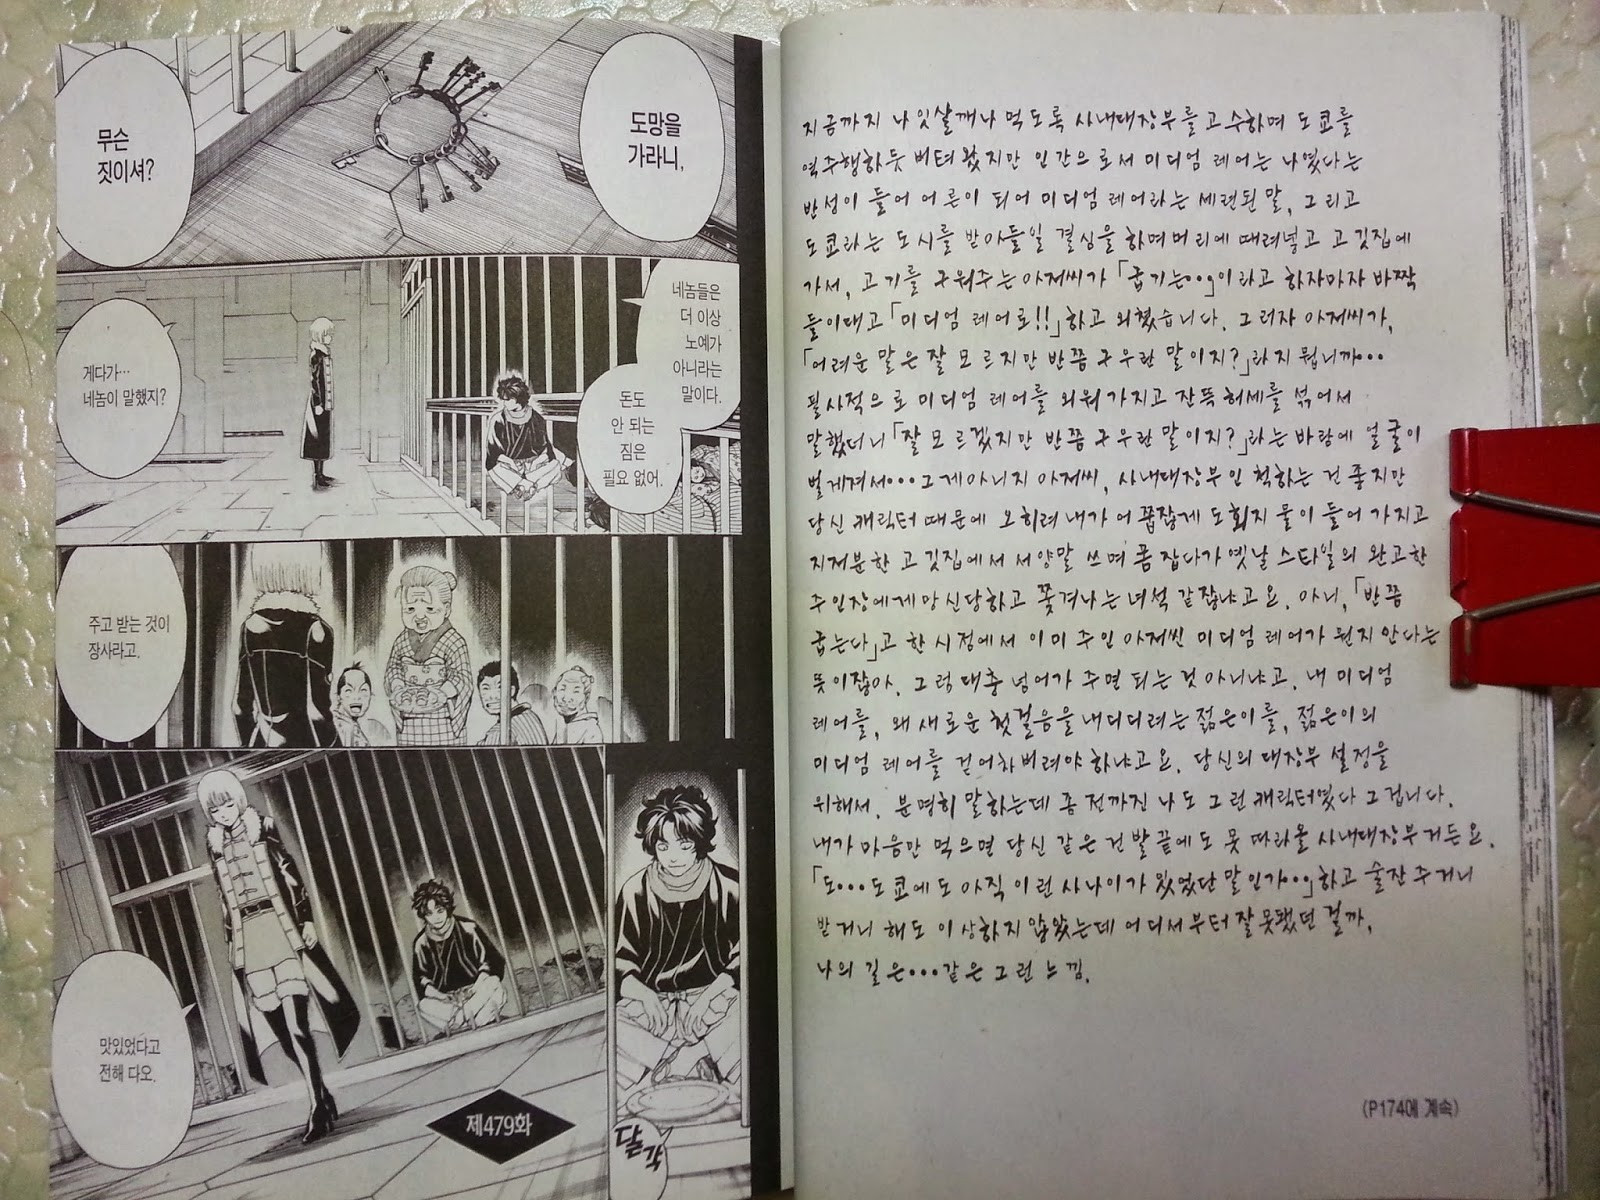 도망을
가라니,
무슨
짓이셔?
네놈들은
더 이상
노예가
아니라는
말이다.
돈도
안 되는
짐은
필요 없어.
게다가…
네놈이 말했지?
주고 받는 것이
장사라고.
맛있었다고
전해 다오.
달각
제479화
지금까지 나잇살깨나 먹도록 사내대장부를 고수하며 도쿄를
역주행하듯 버텨 왔지만 인간으로서 미디엄 레어는 나였다는
반성이 들어 어른이 되어 미디엄 레어라는 세련된 말, 그리고
도쿄라는 도시를 받아들일 결심을 하며 머리에 때려넣고 고깃집에
가서, 고기를 구워주는 아저씨가 「굽기는··」이라고 하자마자 바짝
들이대고 「미디엄 레어로!!」하고 외쳤습니다. 그러자 아저씨가,
「어려운 말은 잘 모르지만 반쯤 구우란 말이지?」라지 뭡니까…
필사적으로 미디엄 레어를 외워 가지고 잔뜩 허세를 섞어서
말했더니 「잘 모르겠지만 반쯤 구우란 말이지?」라는 바람에 얼굴이
벌게져서…그게 아니지 아저씨, 사내대장부인 척하는 건 좋지만
당신 캐릭터 때문에 오히려 내가 어쭙잖게 도회지 물이 들어 가지고
지저분한 고깃집에서 서양말 쓰며 폼 잡다가 옛날 스타일의 완고한
주인장에게 망신당하고 쫓겨나는 녀석 같잖냐고요. 아니, 「반쯤
굽는다」고 한 시점에서 이미 주인 아저씬 미디엄 레어가 뭔지 안다는
뜻이잖아. 그럼 대충 넘어가 주면 되는 것 아니냐고. 내 미디엄
레어를, 왜 새로운 첫걸음을 내디디려는 젊은이를, 젊은이의
미디엄 레어를 걷어차버려야 하냐고요. 당신의 대장부 설정을
위해서. 분명히 말하는데 좀 전까진 나도 그런 캐릭터였다 그겁니다.
내가 마음만 먹으면 당신 같은 건 발끝에도 못 따라올 사내대장부거든요.
「도…도쿄에도 아직 이런 사나이가 있었단 말인가…」하고 술잔 주거니
받거니 해도 이상하지 않았는데 어디서부터 잘못됐던 걸까,
나의 길은…같은 그런 느낌.
(P174에 계속)